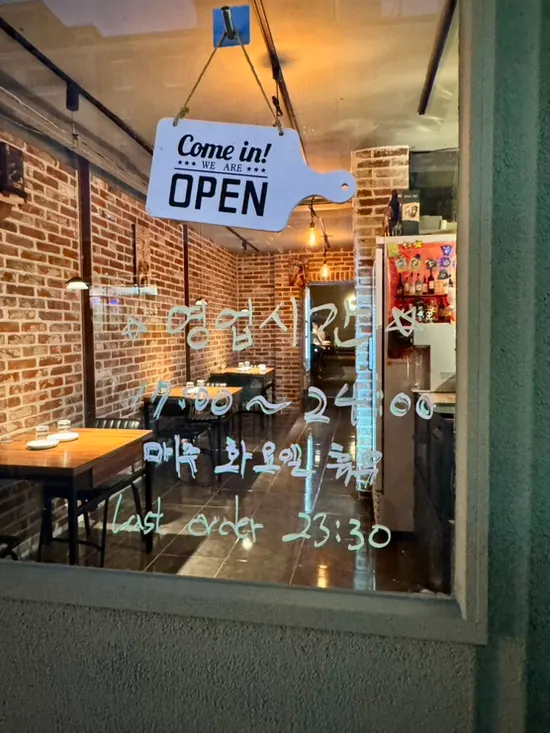 Come in!
WE ARE
OPEN
☆영업시간☆
17:00~24:00
매주 화요일 휴무
Last order 23:30